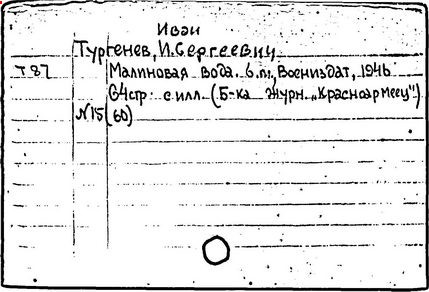 Иван
Тургенев, И. Сергеевич
Т 87 Малиновая вода. б.м., Воениздат, 1946
64стр. с илл. (Б-ка журн. „Красноармеец")
N15(60)